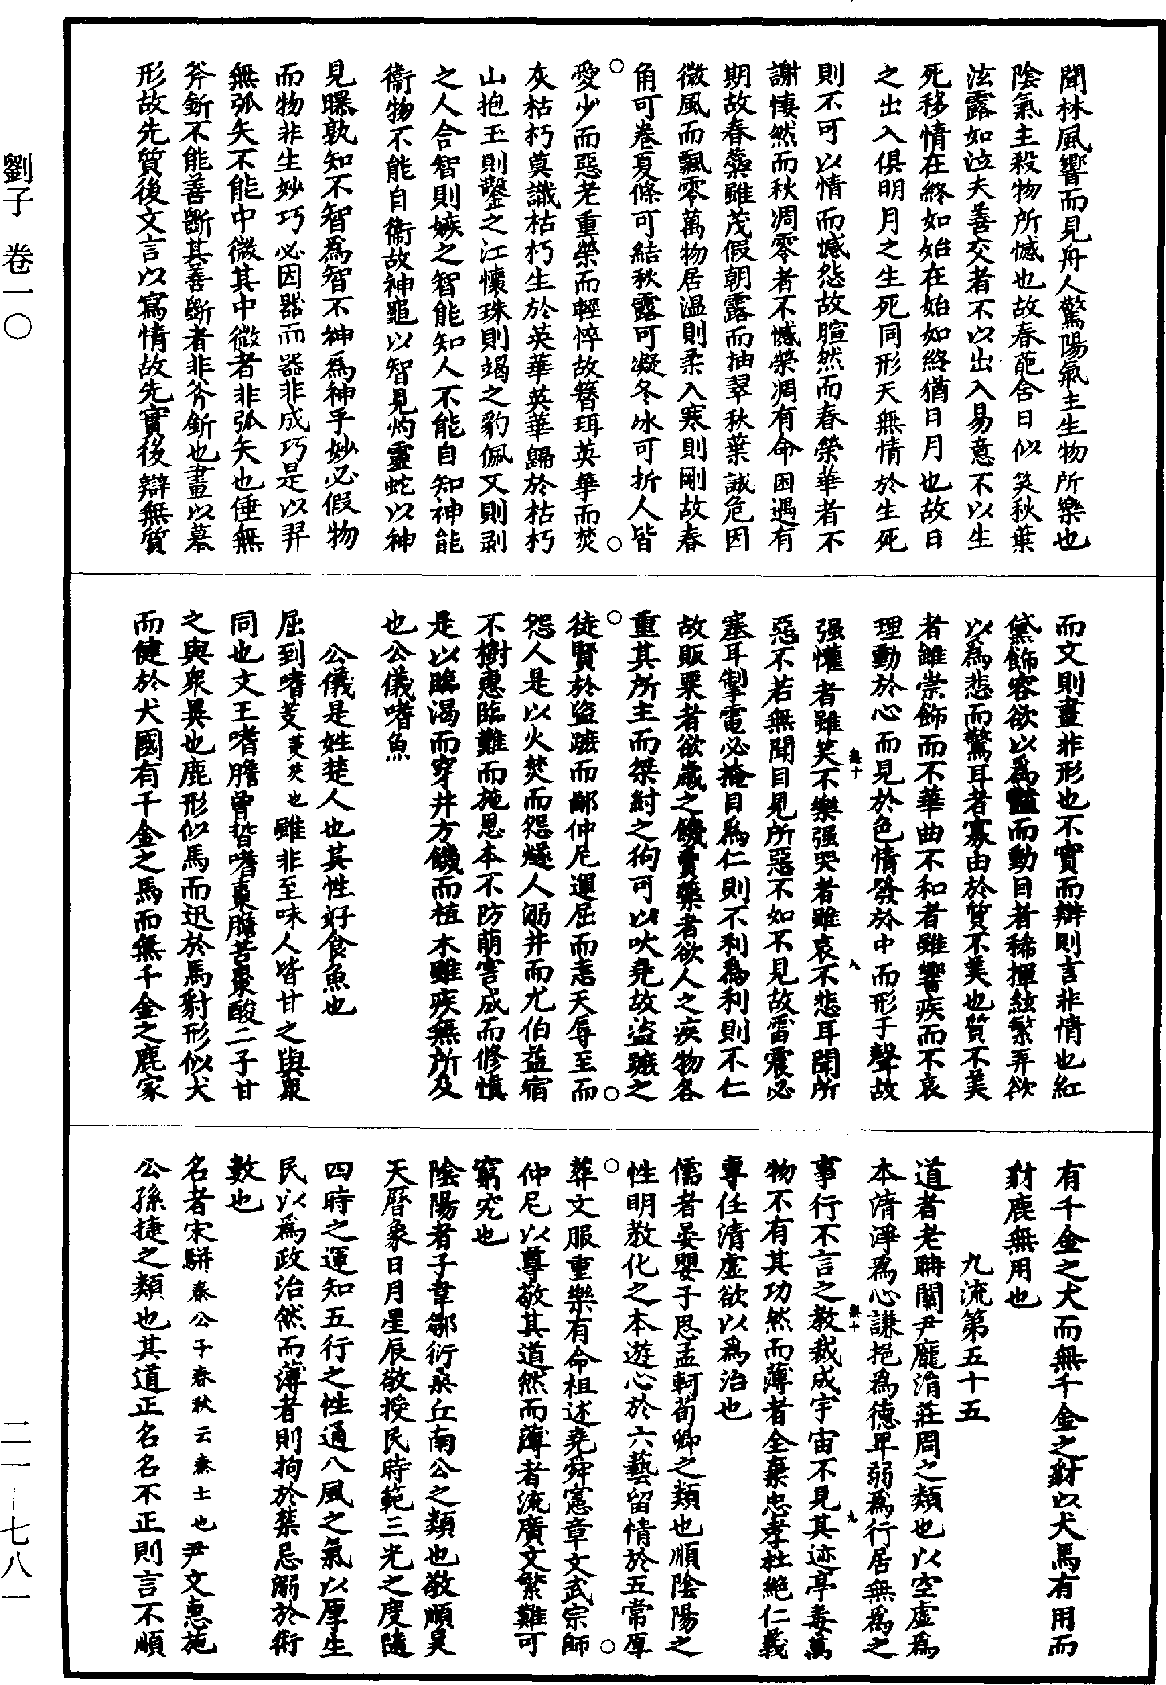 聞林風響而見舟人驚陽氣主生物所樂也
陰氣主殺物所憾也故春葩含日似笑秋葉
泫露如泣夫善交者不以出入易意不以生
死移情在終如始在始如終猶日月也故日
之出入俱明月之生死同形天無情於生死
則不可以情而憾怨故暄然而春榮華者不
謝悽然而秋凋零者不憾榮凋有命困遇有
期故春蘂雖茂假朝露而抽翠秋葉誠危因
微風而飄零萬物居溫則柔入寒則剛故春
角可卷夏條可結秋露可凝冬冰可折人皆
愛少而惡老重榮而輕悴故簪珥英華而焚
灰枯朽莫識枯朽生於英華英華歸於枯朽
山抱玉則鑿之江懷珠則竭之豹佩文則剝
之人含智則嫉之智能知人不能自知神能
衞物不能自衞故神龜以智見灼靈蛇以神
見曝孰知不智爲智不神爲神乎妙必假物
而物非生妙巧必因器而器非成巧是以羿
無弧矢不能中微其中微者非弧矢也倕無
斧斨不能善斷其善斷者非斧斨也畫以摹
形故先質後文言以寫情故先實後辯無質
而文則畫非形也不實而辯則言非情也紅
黛飾容欲以爲豔而動目者稀揮絃繁弄欲
以爲悲而驚耳者寡由於質不美也質不美
者雖崇飾而不華曲不和者雖響疾而不哀
理動於心而見於色情發於中而形于聲故
强懽者雖笑不樂强哭者雖哀不悲耳聞所
惡不若無聞目見所惡不如不見故雷震必
塞耳掣電必掩目爲仁則不利爲利則不仁
故販粟者欲歲之饑賣藥者欲人之疾物各
重其所主而桀紂之狗可以吠堯故盜蹠之
徒賢於盜蹠而鄙仲尼運屈而恚天辱至而
怨人是以火焚而怨燧人溺井而尤伯益宿
不樹惠臨難而施恩本不防萌害成而修慎
是以臨渴而穿井方饑而植禾雖疾無所及
也公儀嗜魚
公儀是姓楚人也其性好食魚也
屈到嗜芰芰芡也雖非至味人皆甘之與衆
同也文王嗜膽曾晳嗜棗膽苦棗酸二子甘
之與衆異也鹿形似馬而迅於馬豺形似犬
而健於犬國有千金之馬而無千金之鹿家
有千金之犬而無千金之豺以犬馬有用而
豺鹿無用也
九流第五十五
道者老聃關尹龐涓莊周之類也以空虛爲
本清淨爲心謙挹爲德卑弱爲行居無爲之
事行不言之教裁成宇宙不見其迹亭毒萬
物不有其功然而薄者全棄忠孝杜絶仁義
專任清虛欲以爲治也
儒者晏嬰子思孟軻荀卿之類也順陰陽之
性明教化之本遊心於六藝留情於五常厚
葬文服重樂有命祖述堯舜憲章文武宗師
仲尼以尊敬其道然而薄者流廣文繁難可
窮究也
陰陽者子韋鄒衍桑丘南公之類也敬順昊
天曆象日月星辰敬授民時範三光之度隨
四時之運知五行之性通八風之氣以厚生
民以爲政治然而薄者則拘於禁忌溺於術
數也
名者宋騈秦公子春秋云秦士也尹文惠施
公孫捷之類也其道正名名不正則言不順
劉子 卷一〇
二一—七八一